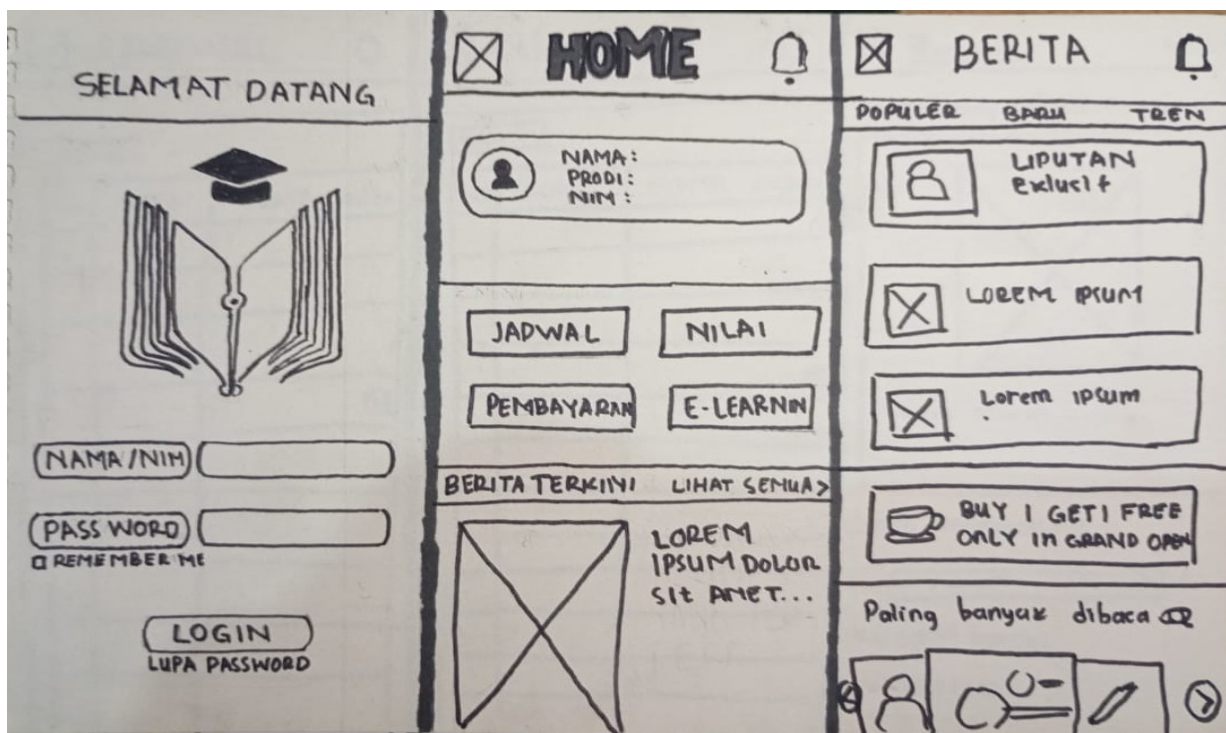 SELAMAT DATANG
NAMA/NIM
PASSWORD
REMEMBER ME
LOGIN
LUPA PASSWORD
HOME
NAMA:
PRODI:
NIM:
JADWAL
NILAI
PEMBAYARAN
E-LEARNIN
BERITA TERKINI
LIHAT SEMUA>
LOREM
IPSUM DOLOR
SIt AMET...
BERITA
POPULER BARU TREN
LIPUTAN
Exlusif
LOREM IPSUM
Lorem IPSum
BUY 1 GET1 FREE
ONLY In GRAND OPEN
Paling banyak dibaca